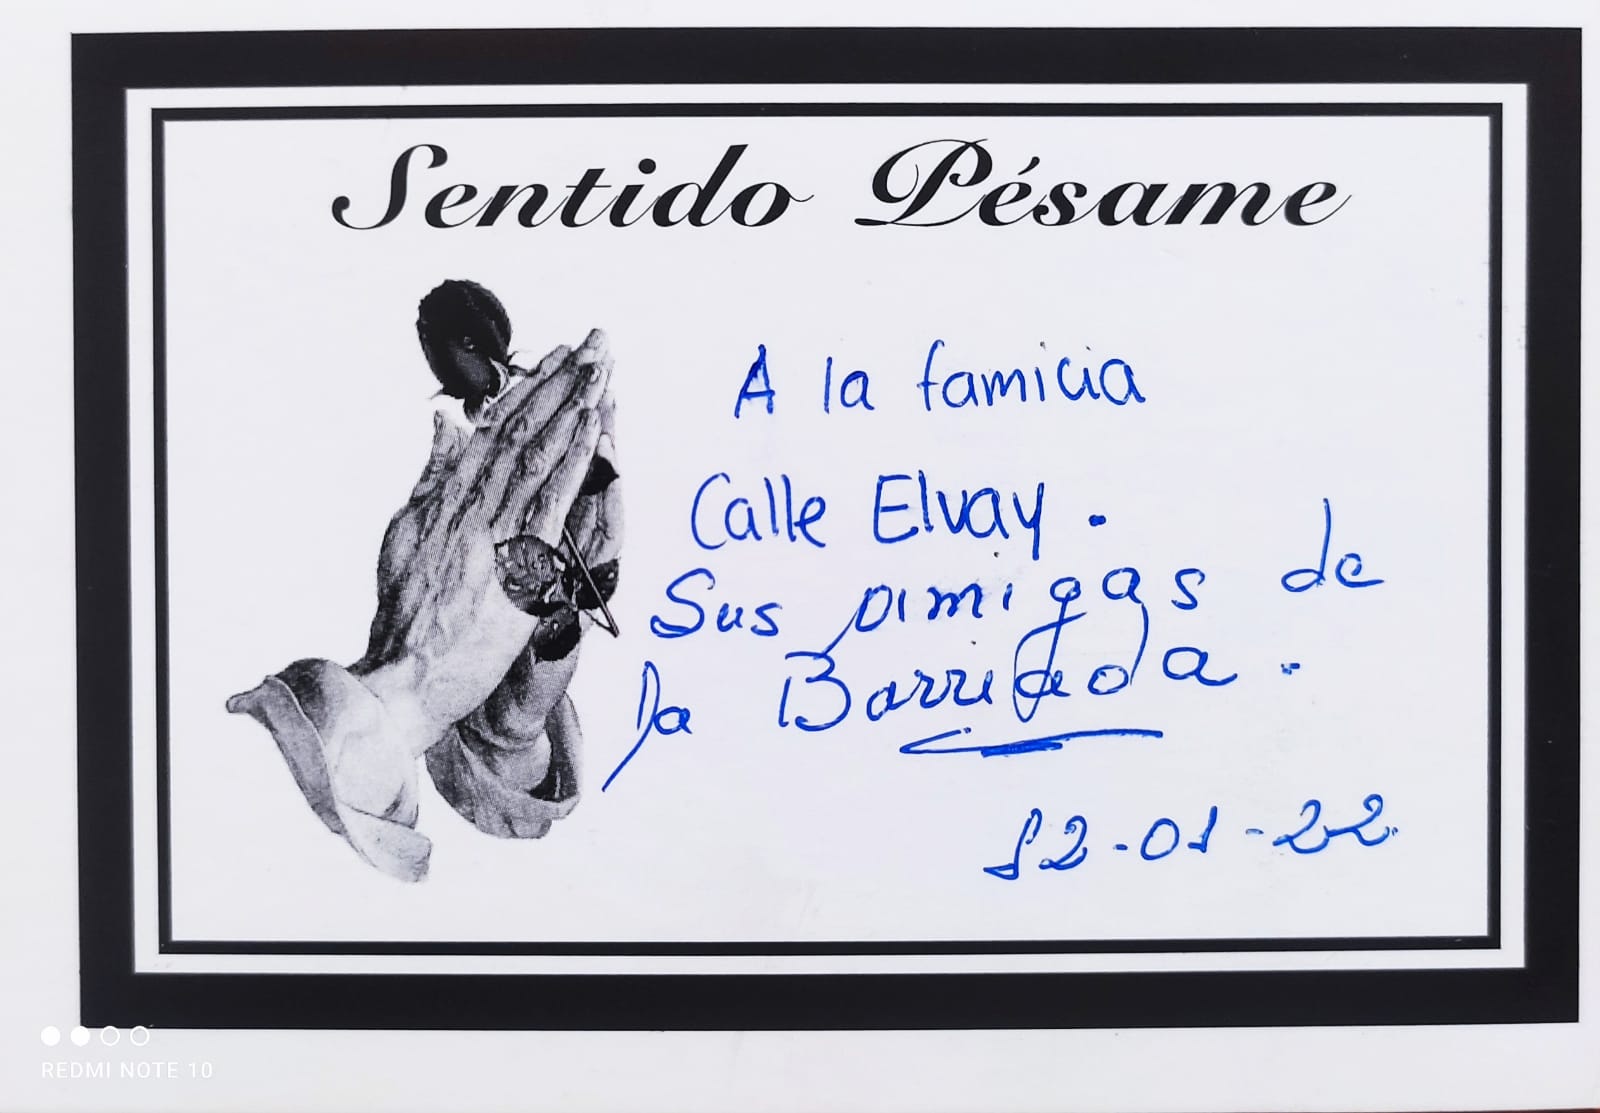 Sentido Pésame
A la familia
Calle Elvay.
Sus amigas de
la Barriada.
12-01-22
REDMI NOTE 10